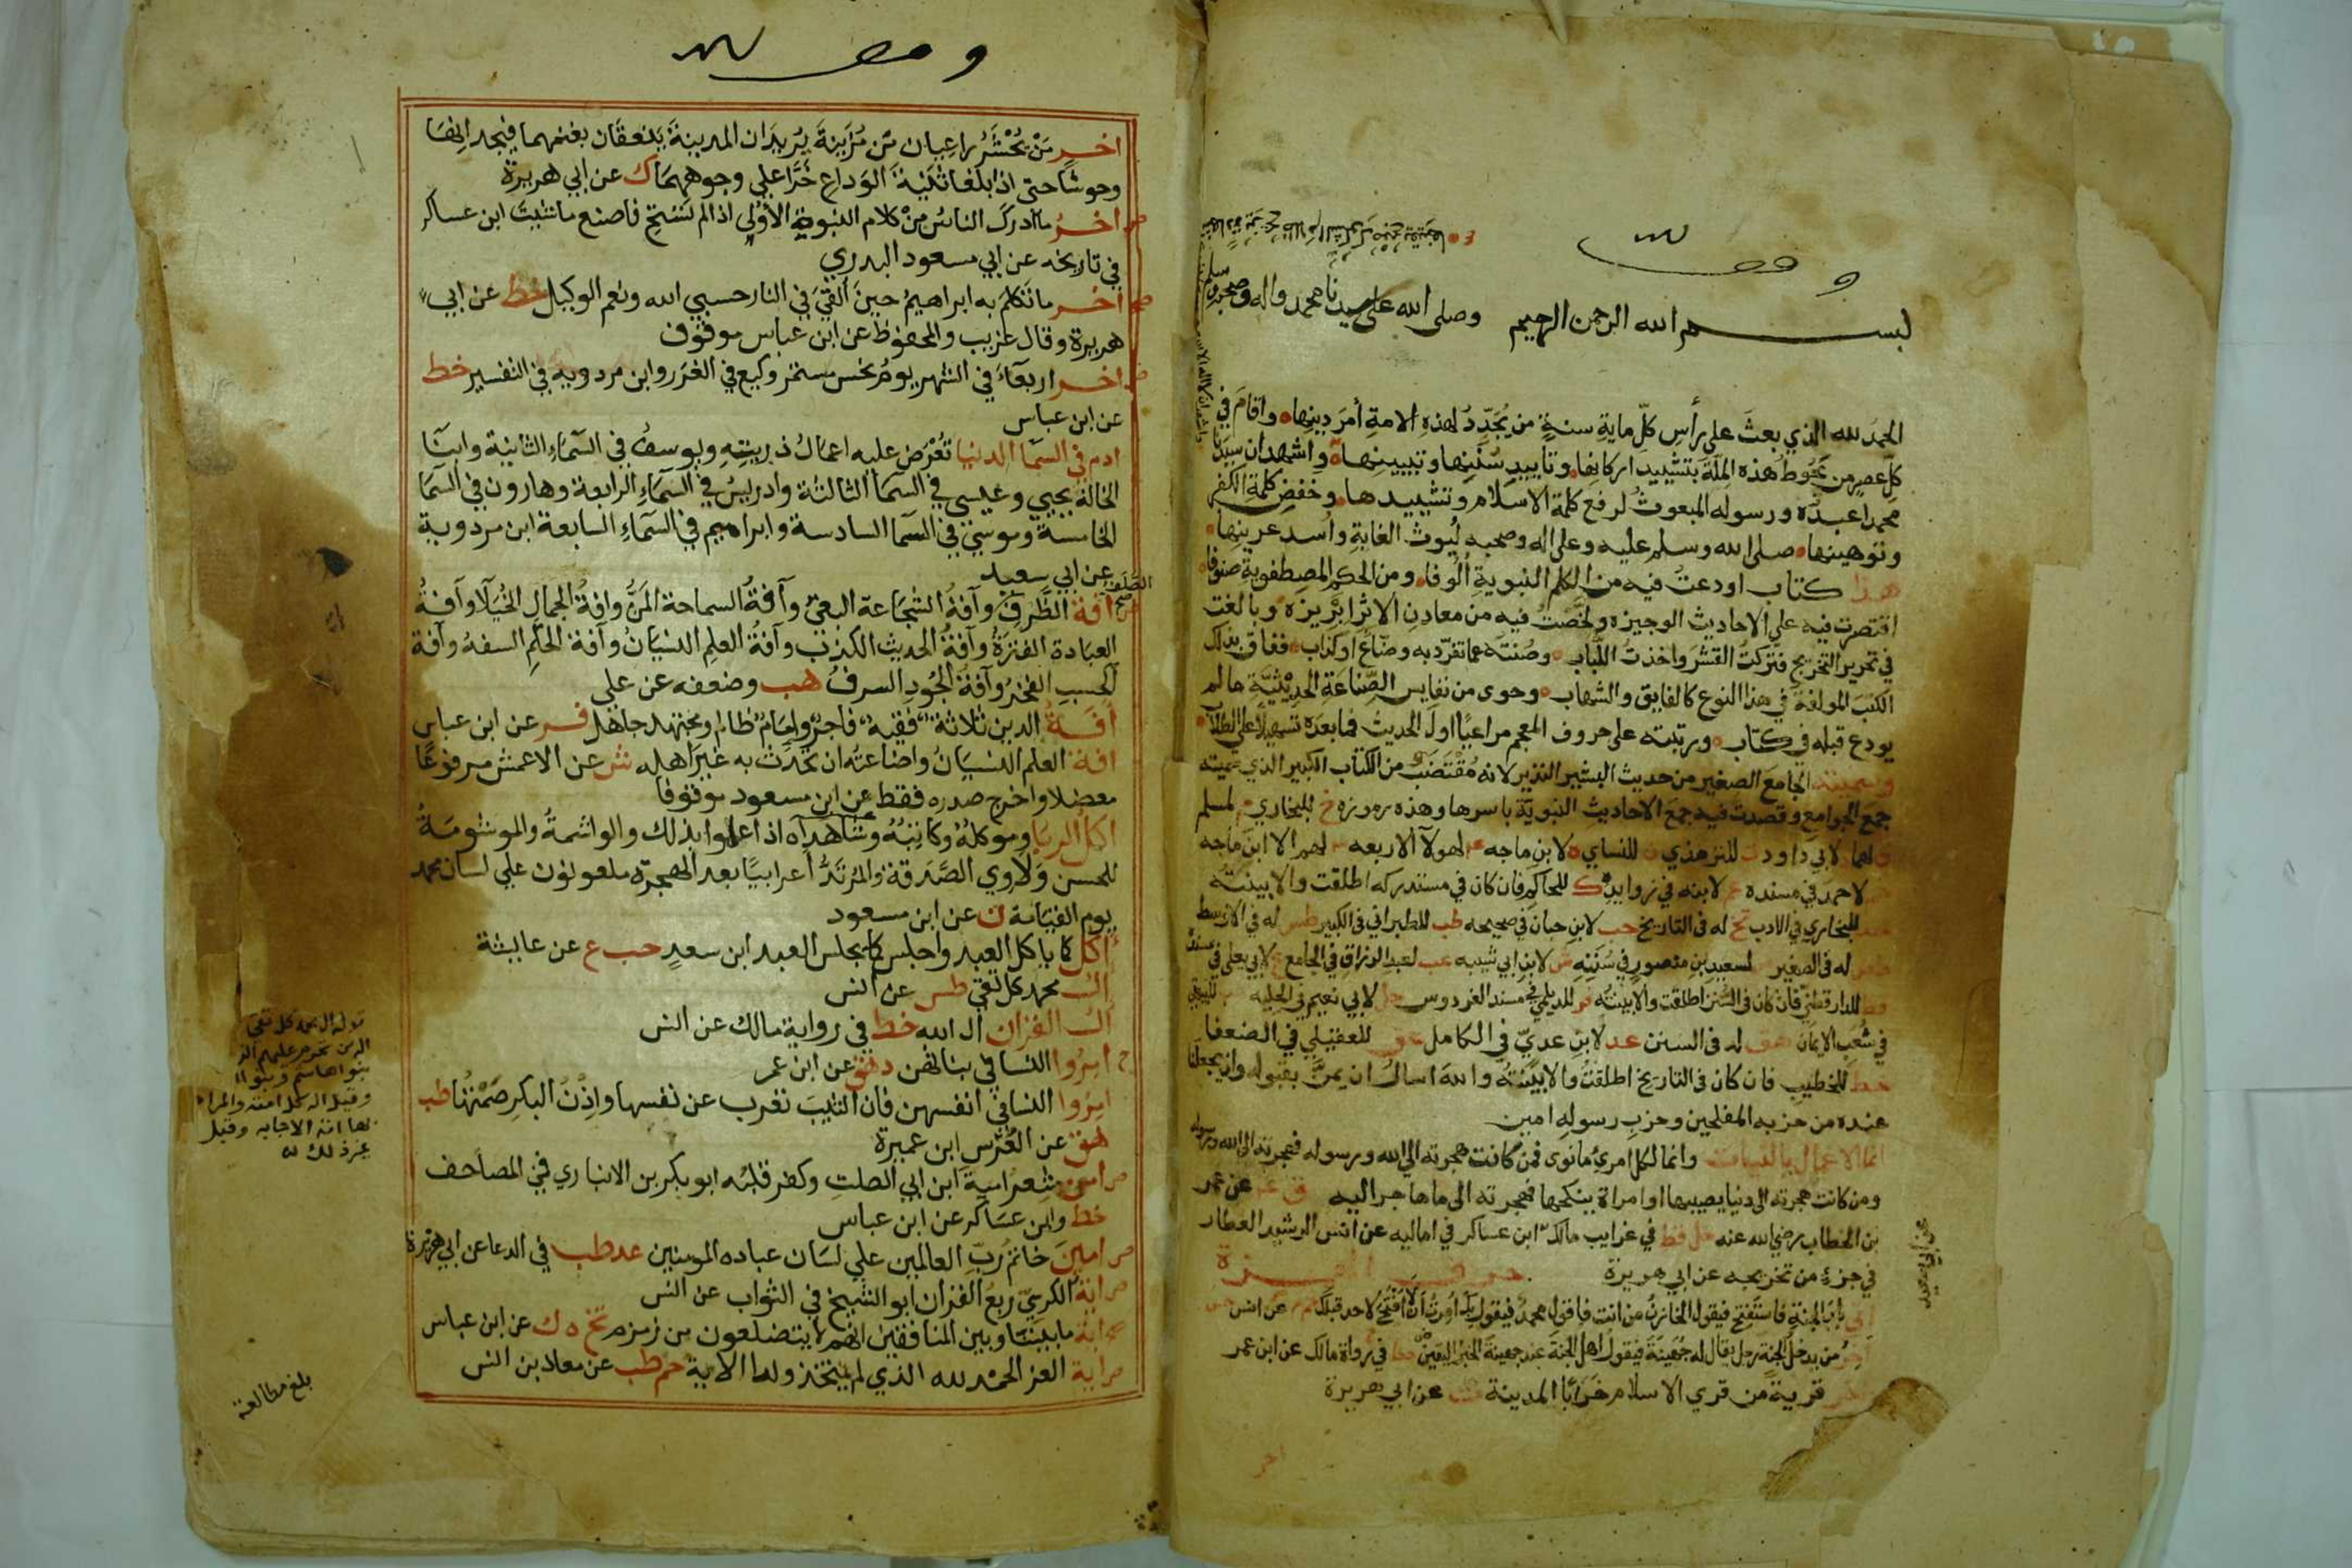 وقف لله
بسم الله الرحمن الرحيم وصلى الله على سيدنا محمد واله وصحبه وسلم
الحمد لله الذي بعث على رأس كلّ ماية سنةٍ من يُجَدِّدُ لهذه الامةِ أمرَ دينِها واقامَ في
كلّ عصرٍ من يحُوطُ هذه الملّةَ بتشييدِ اركانِها وتأييدِ سُنَنِها وتبيينِها واشهد ان سيدنا
محمدا عبدُه ورسوله المبعوثُ لرفع كلمة الاسلام وتشييدها وخفض كلمةِ الكفر
وتوهينها صلى الله وسلم عليه وعلى اله وصحبه لُيوث الغابةِ واُسد عرينِها
هذا كتاب اودعتُ فيه من الكلم النبويةِ اُلُوفا ومن الحكم المصطفويةِ صنوفا
اقتصرت فيه على الاحاديث الوجيزه ولخّصتُ فيه من معادِن الاثرِ ابريزه وبالغت
في تحرير التخريج فتركتُ القشرَ واخذتُ اللُّباب وصُنته عما تفرّد به وضّاعٌ او كذاب ففاق بذلك
الكتبَ المولفة في هذا النوع كالفايق والشهاب وحوى من نفايس الصِّناعةِ الحديثيّة مالم
يودع قبله في كتاب ورتبته على حروف المعجم مراعيًا اولَ الحديث فما بعده تسهيلاً على الطلاب
وسميته الجامعَ الصغير من حديث البشير النذير لانه مُقْتَضَبٌ من الكتاب الكبير الذي سميته
جمعَ الجوامع وقصدت فيه جمعَ الاحاديثِ النبويّة باسرها وهذه رموزه خ للبخاري م لمسلم
ق لهما د لابي داود ت للترمذي ن للنساي ه لابن ماجه ٤ لهولآ الاربعه ٣ لهم الا ابن ماجه
حم لاحمد في مسنده عم لابنه في زوايده ك للحاكم فان كان في مستدركه اطلقت والا بينته
خد للبخاري في الادب تخ له في التاريخ حب لابن حبان في صحيحه طب للطبراني في الكبير طس له في الاوسط
طص له في الصغير ص لسعيد بن منصورٍ في سُنَنِهِ ش لابن ابي شيبه عب لعبد الرزاق في الجامع ع لابي يعلى في مسنده
قط للدارقطني فان كان في السُّنن اطلقت والا بينتُه فر للديلمي في مسند الفردوس حل لابي نعيم في الحليه هب للبيهقي
في شُعَبِ الايمان هق له في السنن عد لابن عديّ في الكامل عق للعقيلي في الضعفا
خط للخطيب فان كان في التاريخ اطلقتُ والا بيّنتُه والله اسالُ ان يمنَّ بقبوله وان يجعلنا
عنده من حزبه المفلحين وحزبِ رسوله امين
انما الاعمال بالنيات وانما لكل امرئٍ مانوى فمن كانت هجرته الى الله ورسوله فهجرته الى الله ورسوله
ومن كانت هجرته الى دنيا يصيبها او امراة ينكحها فهجرته الى ما هاجر اليه ق ٤ عن عمر
بن الخطاب رضي الله عنه حل قط في غرايب مالك ابن عساكر في اماليه عن انس الرشيد العطار
في جزءٍ من تخريجه عن ابي هريرة حرف الهمزة
آتي بابَ الجنةِ فاستفتح فيقول الخازنُ من انت فاقول محمدٌ فيقول بك اُمرتُ ان لا افتحَ لاحد قبلك حم م عن انس
آخر من يدخل الجنة رجل يقال له جهينة فيقول اهل الجنة عند جهينةَ الخبرُ اليقين خط في رواة مالك عن ابن عمر
آخر قريةٍ من قرى الاسلام خرابًا المدينة ت عن ابي هريرة
عن ابي سعيد
اخر
وقف لله
اخر مَنْ يُحْشَرُ راعيان من مُزَينةَ يُريدان المدينةَ ينعقَان بغنمهما فيجدانها
وحوشًا حتى اذا بلغا ثَنيةَ الوَداع خَرَّا على وجوههمَا ك عن ابي هريرة
اخرُ ما ادركَ الناسُ منْ كلام النبوةِ الأولي اذا لم تستح فاصنع ماشئت ابن عساكر
في تاريخه عن ابي مسعود البدري
اخر ماتكلم به ابراهيمُ حينَ اُلقيَ في النار حسبي الله ونعم الوكيل خط عن ابي
هريرة وقال غريب والمحفوظ عن ابن عباس موقوف
اخر اربعآءَ في الشهر يومُ نحس مستمر وكيع في الغرر وابن مردويه في التفسير خط
عن ابن عباس
ادم في السمآ الدنيا تُعْرَض عليه اعمالُ ذريتِهِ ويوسفُ في السّماءِ الثانية وابنَا
الخالة يحيي وعيسى في السمآ الثالثة وادريسُ في السّمَاءِ الرابعة وهارون في السّمَا
الخامسة وموسى في السما السادسة وابراهيم في السّماءِ السابعة ابن مردوية
عن ابي سعيد
آفة الظَّرفِ الصَّلَف وآفةُ الشجَاعة البغىُ وآفةُ السماحة المَنُّ وافةُ الجمالِ الخُيَلَاَ وآفةُ
العبَادة الفترَةُ وآفةُ الحديث الكذبُ وآفةُ العلمِ النسيَانُ وآفة الحلمِ السفهُ وآفة
الحسبِ الفخرُ وآفةُ الجُودِ السرفُ هب وضعفه عن على
آفةُ الدين ثلاثة فقيهٌ فاجرٌ وامامٌ ظالم ومجتهد جاهل فر عن ابن عباس
افة العلم النسيانُ واضاعتُه ان تحدِّث به غيرَ اهله ش عن الاعمش مرفوعًا
معضلا واخرج صدره فقط عن ابن مسعود موقوفا
اكلُ الربَا وموكلهُ وكاتبُهُ وشاهداه اذا علموا بذلك والواشمةُ والموشومَةُ
للحسن ولَاوِي الصَّدَقة والمُرتَدُّ أعرابيًا بعد الهجرة ملعونون على لسان محمد
يوم القيَامة ن عن ابن مسعود
آكل كما ياكل العبد واجلس كما يجلس العبد ابن سعدٍ حب ع عن عايشة
الُ محمد كل تقي طس عن انس
الُ القران ال الله خط في رواية مالك عن انس
امِرُوا النسا في بناتهن د هق عن ابن عمر
امِرُوا النسا في انفسهن فان الثيبَ تعرب عن نفسها واِذْنُ البكرِ صَمْتُهُا طب
هق عن العُرْس ابن عميرة
امن شعر امية ابن ابي الصلتِ وكفر قلبُه ابو بكر بن الانباري في المصاحف
خط وابن عسَاكر عن ابن عباس
امينَ خاتمُ ربِّ العالمين علي لسَان عباده المومنين عد طب في الدعا عن ابي هريرة
ايةُ الكرسيّ ربعُ القران ابو الشيخ في الثواب عن انس
اية مابيننا وبين المنافقين انهم لا يتضلعون من زمزم تخ ه ك عن ابن عباس
اية العز الحمد لله الذي لم يتخذ ولدا الاية حم طب عن معاذ بن انس
قوله ال محمد كل تقي
بلغ مطالعة